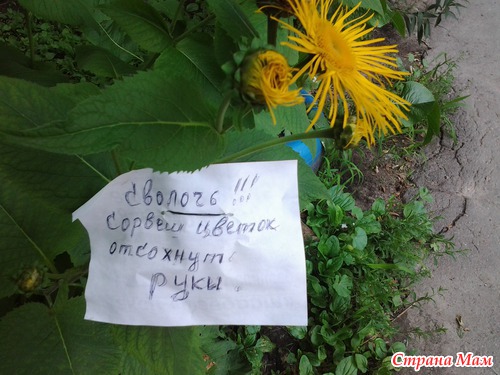 Сволочь!!!
Сорвёш цветок
отсохнуть
руки.
Страна Мам